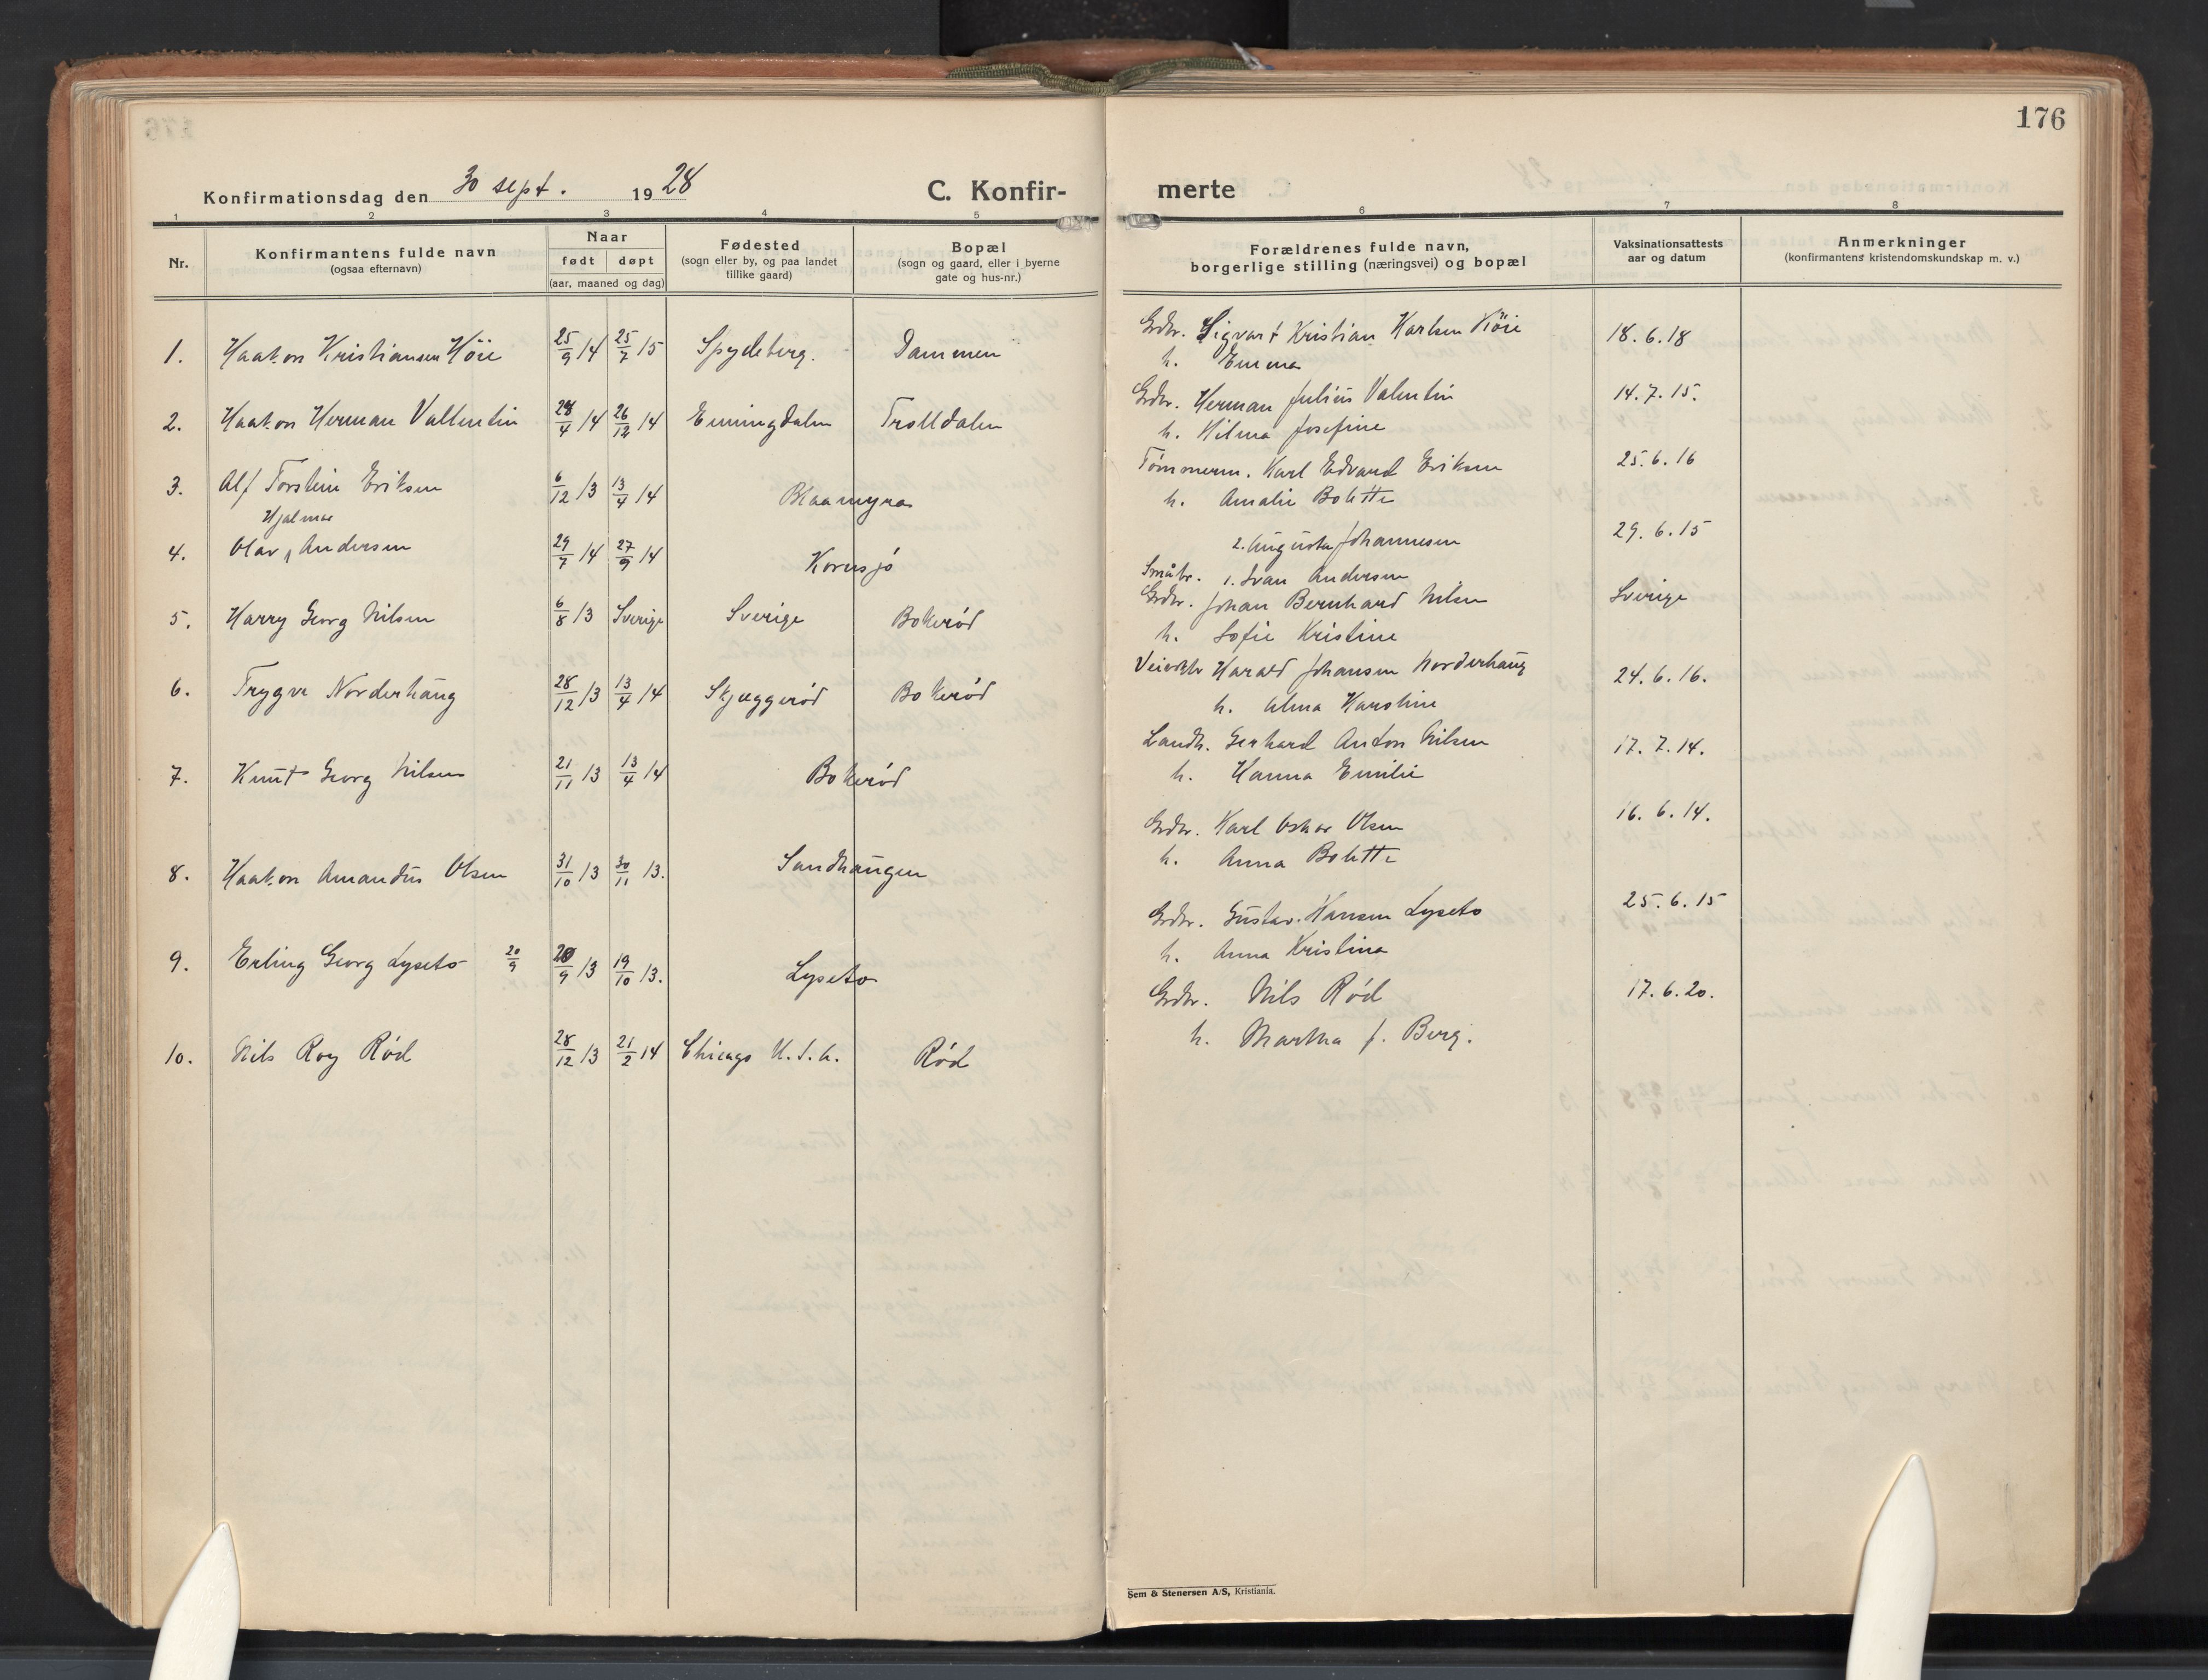 176
Konfirmationsdag den 30 sept. 1928
C. Konfir-
merte
1 2 3 4 5 6 7 8
Nr.
Konfirmantens fulde navn
(ogsaa efternavn)
Naar
født døpt
(aar, maaned og dag)
Fødested
(sogn eller by, og paa landet
tillike gaard)
Bopæl
(sogn og gaard, eller i byerne
gate og hus-nr.)
Forældrenes fulde navn,
borgerlige stilling (næringsvei) og bopæl
Vaksinationsattests
aar og datum
Anmerkninger
(konfirmantens kristendomskundskap m. v.)
1. Haakon Kristiansen Höie 25/9 14 25/7 15 Spydeberg. Dammen
Grdbr. Sigvart Kristian Karlsen Höie 18.6.18
h. Emma
2. Haakon Herman Vallentin 28/4 14 26/12 14 Enningdalen Trolldalen
Grdbr. Herman Julius Valentin 14.7.15.
h. Hilma Josefine
3. Alf Torstein Eriksen 6/12 13 13/4 14 Blaamyra
Tømmerm. Karl Edvard Eriksen 25.6.16
h. Amalie Bolette
Hjalmar
4. Olav Andersen 29/7 14 27/9 14 Kornsjø
2. Augusta Johannesen 29.6.15
Småbr. 1. Ivan Andersen
5. Harry Georg Nilsen 6/8 13 Sverige Sverige Bokerød
Grdbr. Johan Bernhard Nilsen Sverige
h. Sofie Kristine
6. Trygve Norderhaug 28/12 13 13/4 14 Skjæggerød Bokerød
Harald Johansen Norderhaug 24.6.16.
h. Alma Karoline
7. Knut Georg Nilsen 21/11 13 13/4 14 Bokerød
Landh. Gerhard Anton Nilsen 17.7.14.
h. Hanna Emilie
8. Haakon Amandus Olsen 31/10 13 30/11 13. Sandhaugen
Grdbr. Karl Oskar Olsen 16.6.14.
h. Anna Bolette
9. Erling Georg Lyseto 20/9 20/9 13 19/10 13. Lyseto
Grdbr. Gustav Hansen Lyseto 25.6.15
h. Anna Kristina
10. Nils Roy Rød 28/12 13 21/2 14 Chicago U.S.A. Rød
Grdbr. Nils Rød 17.6.20.
h. Martha J. Berg.
Sem & Stenersen A/S, Kristiania.